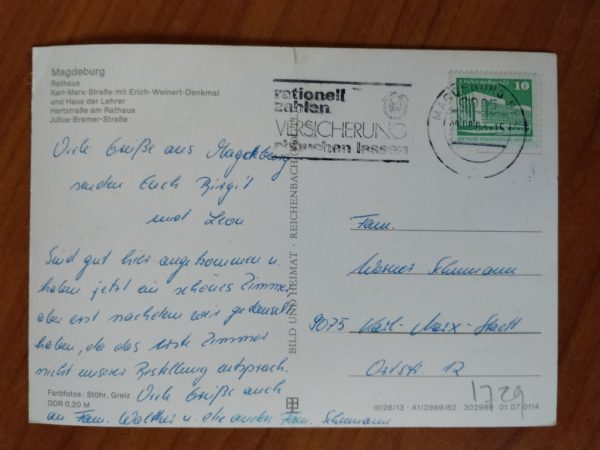 Magdeburg
Rathaus
Karl-Marx-Straße mit Erich-Weinert-Denkmal
und Haus der Lehrer
Hartstraße am Rathaus
Julius-Bremer-Straße
Viele Grüße aus Magdeburg
senden Euch Birgit
und Leon
Sind gut hier angekommen u.
haben jetzt ein schönes Zimmer,
aber erst nachdem wir getauscht
haben, da das erste Zimmer
nicht unserer Bestellung entsprach.
Viele Grüße auch
an Fam. Walther u. die andere Fam. Schumann
Farbfotos: Stöhr, Greiz
DDR 0,20 M
BILD UND HEIMAT · REICHENBACH
rationell
zahlen
VERSICHERUNG
abbuchen lassen
MAGDEBURG
10
Fam.
Werner Schumann
9075 Karl-Marx-Stadt
Ortstr. 12
1729
III/26/13 · A1/2969/82 · 302969 01 07 0114